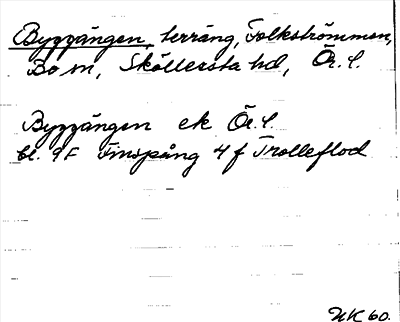 Byggängen, terräng, Folkströmmen,
Bo sn, Sköllersta hd, Ör. l.
Byggängen ek Ör. l.
bl. 9F Finspång 4 f Trolleflod
NK 60.